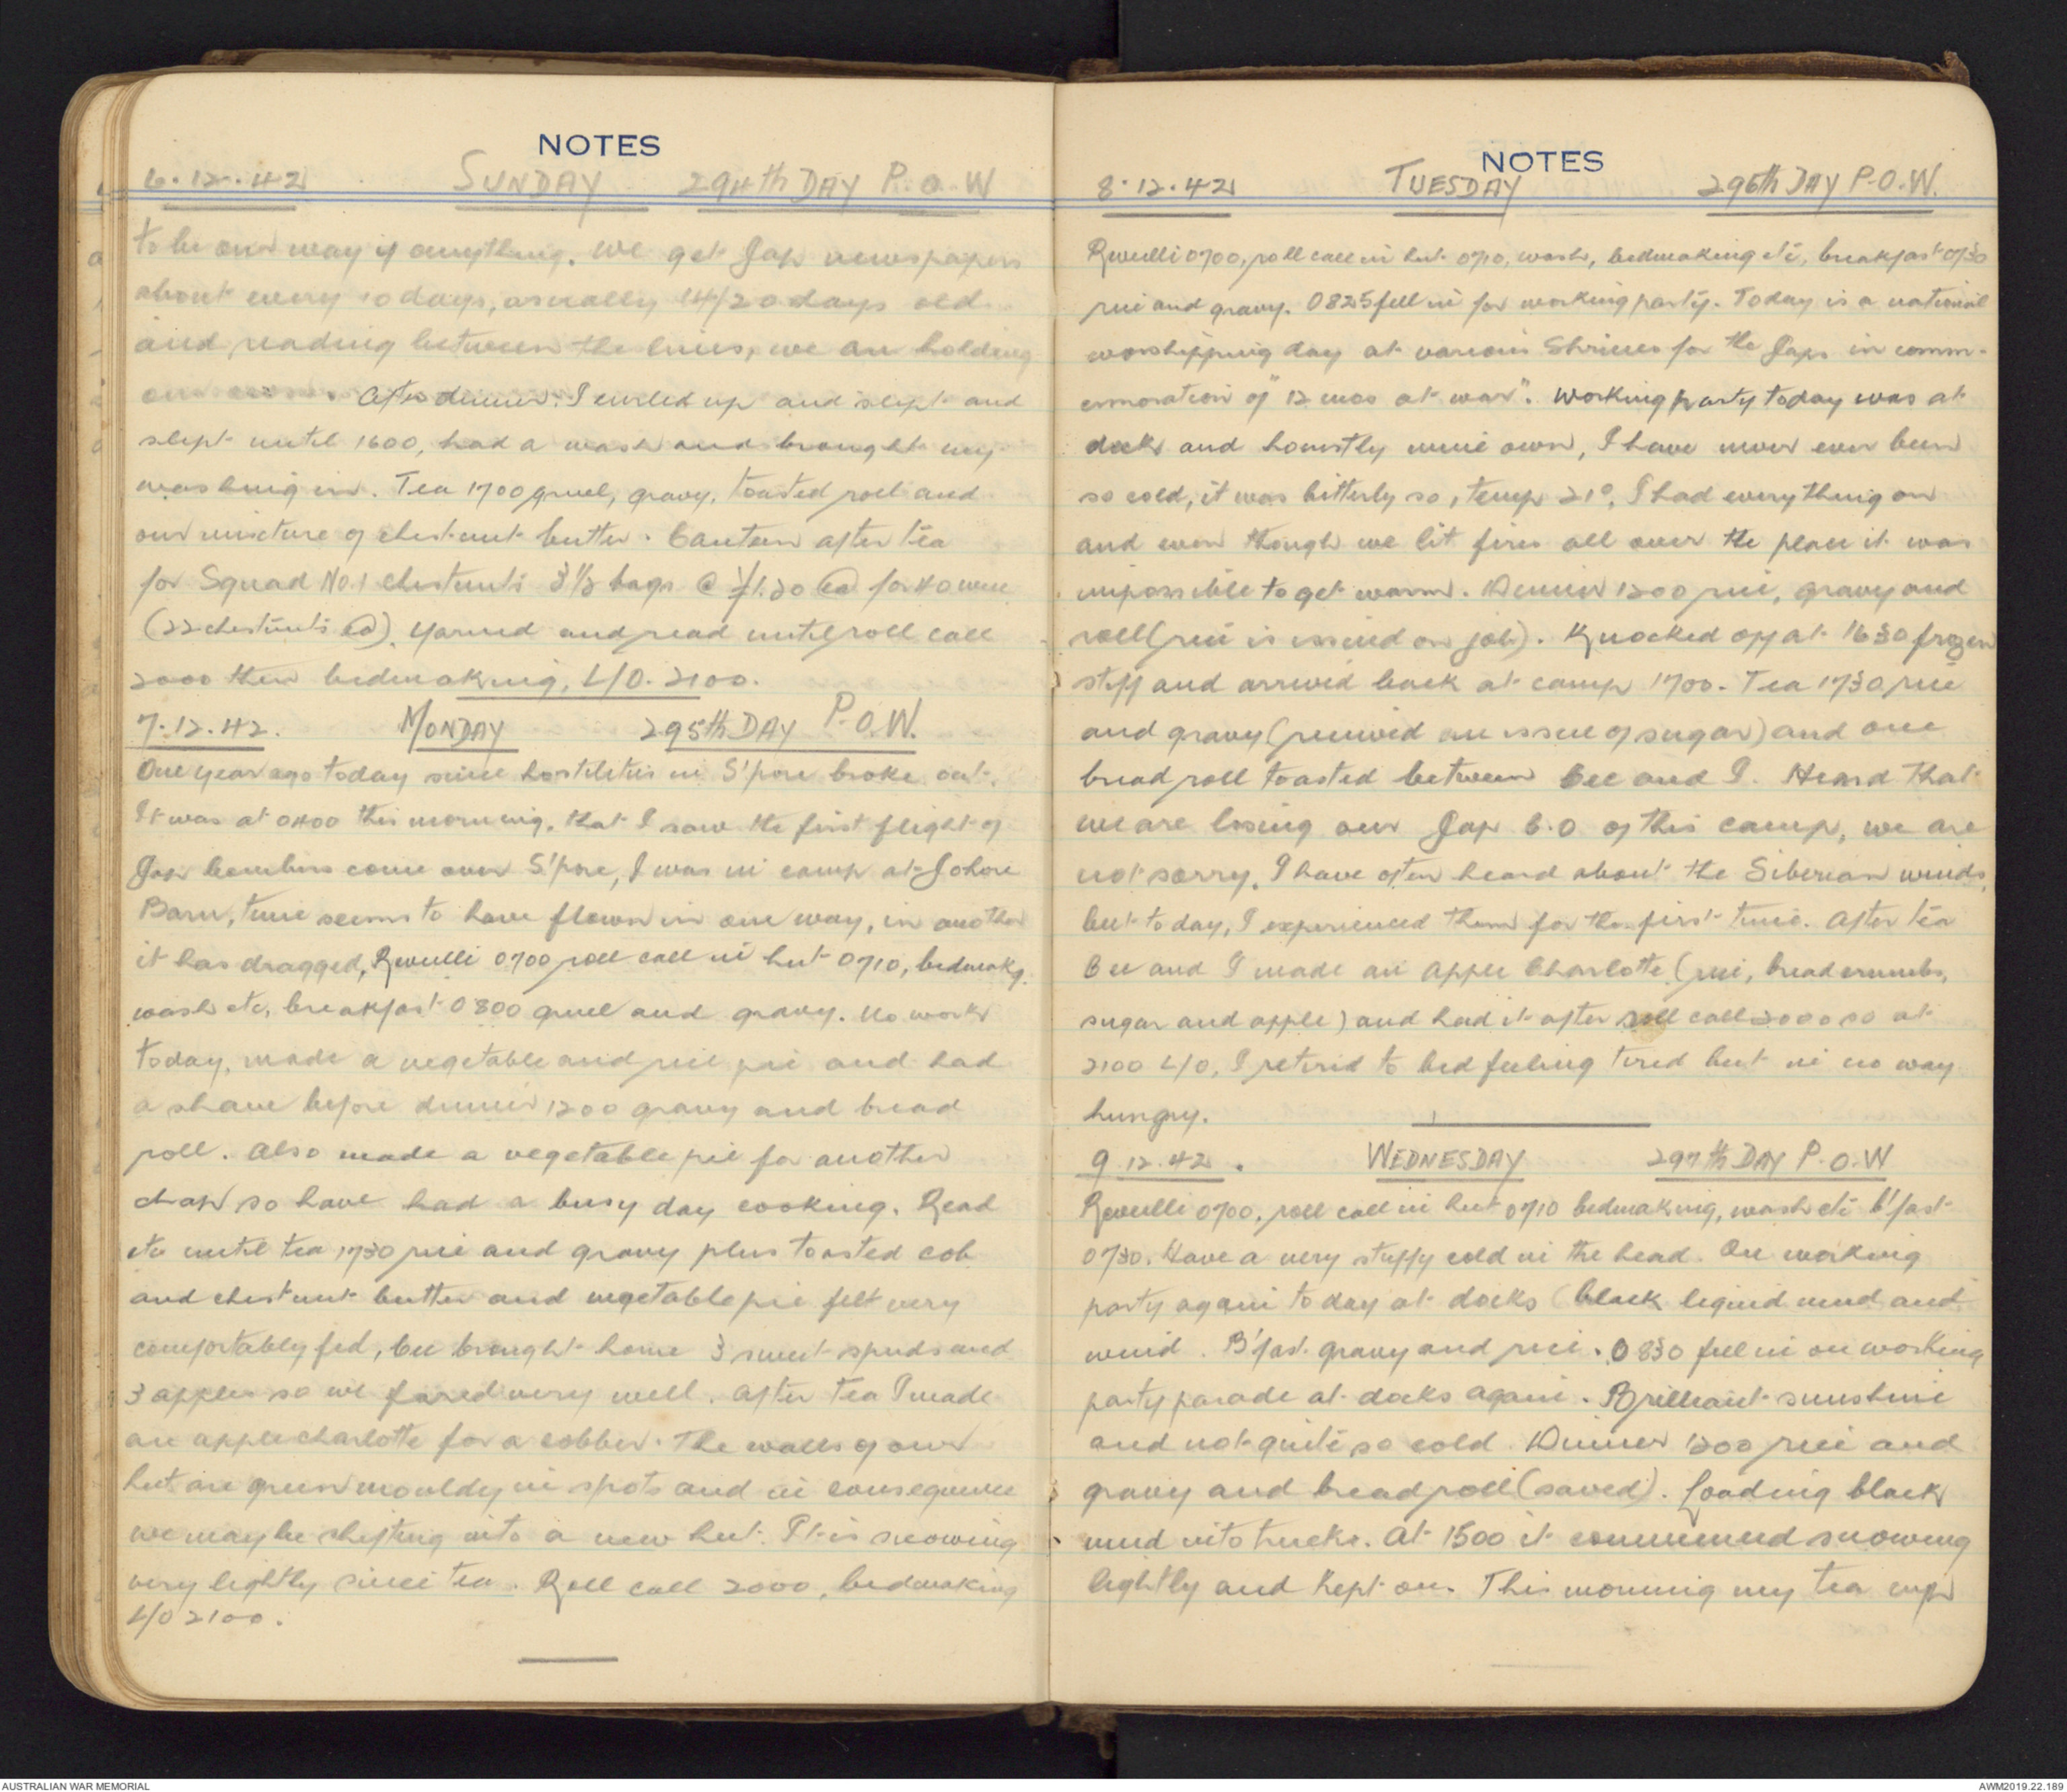 NOTES
6.12.42 SUNDAY 294th DAY P.O.W
to be our way if anything. We get Jap newspapers
about every 10 days, usually 14/20 days old
and reading between the lines, we are holding
our own. After dinner I curled up and slept and
slept until 1600, had a wash and brought my
washing in. Tea 1700 gruel, gravy, toasted roll and
our mixture of chestnut butter. Canteen after tea
for Squad No.1 chestnuts 3½ bags @ ¥1.30 ea for 40 men
(22 chestnuts ea). Yarned and read until roll call
2000 then bedmaking, L/O. 2100.
7.12.42. MONDAY 295th DAY P.O.W.
One year ago today since hostilities in S'pore broke out.
It was at 0400 this morning, that I saw the first flight of
Jap bombers come over S'pore, I was in camp at Johore
Baru, time seems to have flown in one way, in another
it has dragged, Reveille 0700 roll call in hut 0710, bedmakg.
wash etc, breakfast 0800 gruel and gravy. No work
today, made a vegetable and rice pie and had
a shave before dinner 1200 gravy and bread
roll. Also made a vegetable pie for another
chap so have had a busy day cooking. Read
etc until tea 1730 rice and gravy plus toasted cob
and chestnut butter and vegetable pie felt very
comfortably fed, Cec brought home 3 sweet spuds and
3 apples so we fared very well. After tea I made
an apple charlotte for a cobber. The walls of our
hut are green mouldy in spots and in consequence
we may be shifting into a new hut. It is snowing
very lightly since tea. Roll call 2000, bedmaking
L/O 2100.
NOTES
8.12.42 TUESDAY 296th DAY P.O.W.
Reveille 0700, roll call in hut 0710, wash, bedmaking etc, breakfast 0730
rice and gravy. 0825 fell in for working party. Today is a national
worshipping day at various Shrines for the Japs in comm-
emoration of "12 mos at war". Working party today was at
dock and honestly mine own, I have never ever been
so cold, it was bitterly so, temp 21°, I had everything on
and even though we lit fires all over the place it was
impossible to get warm. Dinner 1200 rice, gravy and
roll (rice is issued on job). Knocked off at 1630 frozen
stiff and arrived back at camp 1700. Tea 1730 rice
and gravy (received an issue of sugar) and one
bread roll toasted between Cec and I. Heard that
we are losing our Jap C.O of this camp, we are
not sorry. I have often heard about the Siberian winds,
but today, I experienced them for the first time. After tea
Cec and I made an apple Charlotte (rice, breadcrumbs,
sugar and apple) and had it after roll call 2000 so at
2100 L/O, I retired to bed feeling tired but in no way
hungry.
9.12.42. WEDNESDAY 297th DAY P.O.W
Reveille 0700, roll call in hut 0710 bedmaking, wash etc b'fast
0730. Have a very stuffy cold in the head. On working
party again today at docks (black liquid mud and
wind. B'fast gravy and rice. 0830 fell in on working
party parade at docks again. Brilliant sunshine
and not quite so cold. Dinner 1200 rice and
gravy and bread roll (saved). Loading black
mud into trucks. At 1500 it commenced snowing
lightly and kept on. This morning my tea cup
AUSTRALIAN WAR MEMORIAL
AWM2019.22.189